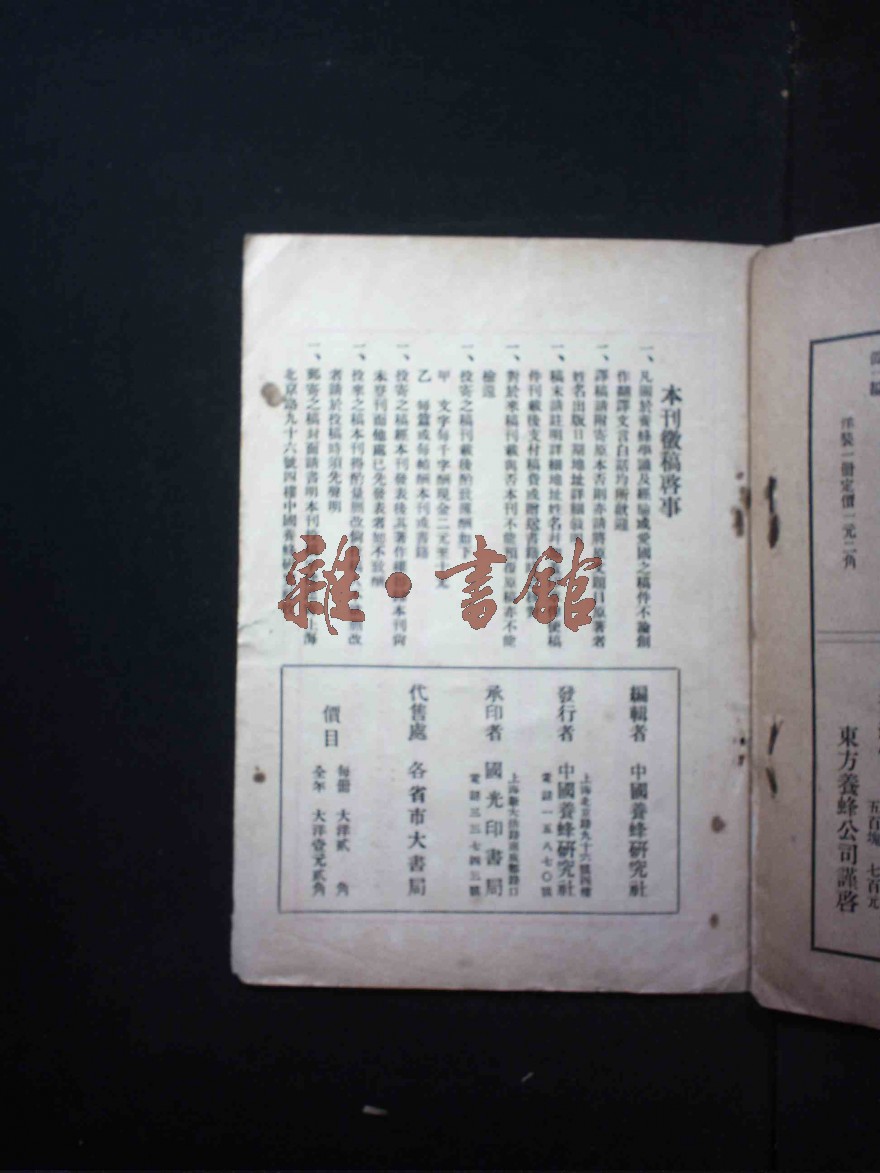 本刊徵稿啓事
一、凡關於養蜂學識及經驗或愛國之稿件不論創
作翻譯文言白話均所歡迎
一、譯稿請附寄原本否則亦請將原
姓名出版日期地址詳細
一、稿末請註明詳細地址姓名
件刊載後支付稿費或贈送書錄
一、對於來稿刊載與否本刊不能
檢還
一、投寄之稿刊載後酌致薄酬如下
甲 文字每千字酬現金二元至
乙 每篇或每幀酬本刊或書籍
一、投寄之稿經本刊發表後其著作
未登刊而他處已先發表者恕不致酬
一、投來之稿本刊得酌量刪改
者請於投稿時須先聲明
一、郵寄之稿封面請書明本刊
北京路九十六號四樓中國養蜂
雜·書館
編輯者 中國養蜂研究社
上海北京路九十六號四樓
發行者 中國養蜂研究社
電話一五八七〇號
承印者 國光印書局
電話三三七四五號
代售處 各省市大書局
價目
每冊 大洋貳角
全年 大洋壹元貳角
洋裝一冊定價一元二角
五百塊 七百元
東方養蜂公司謹啓